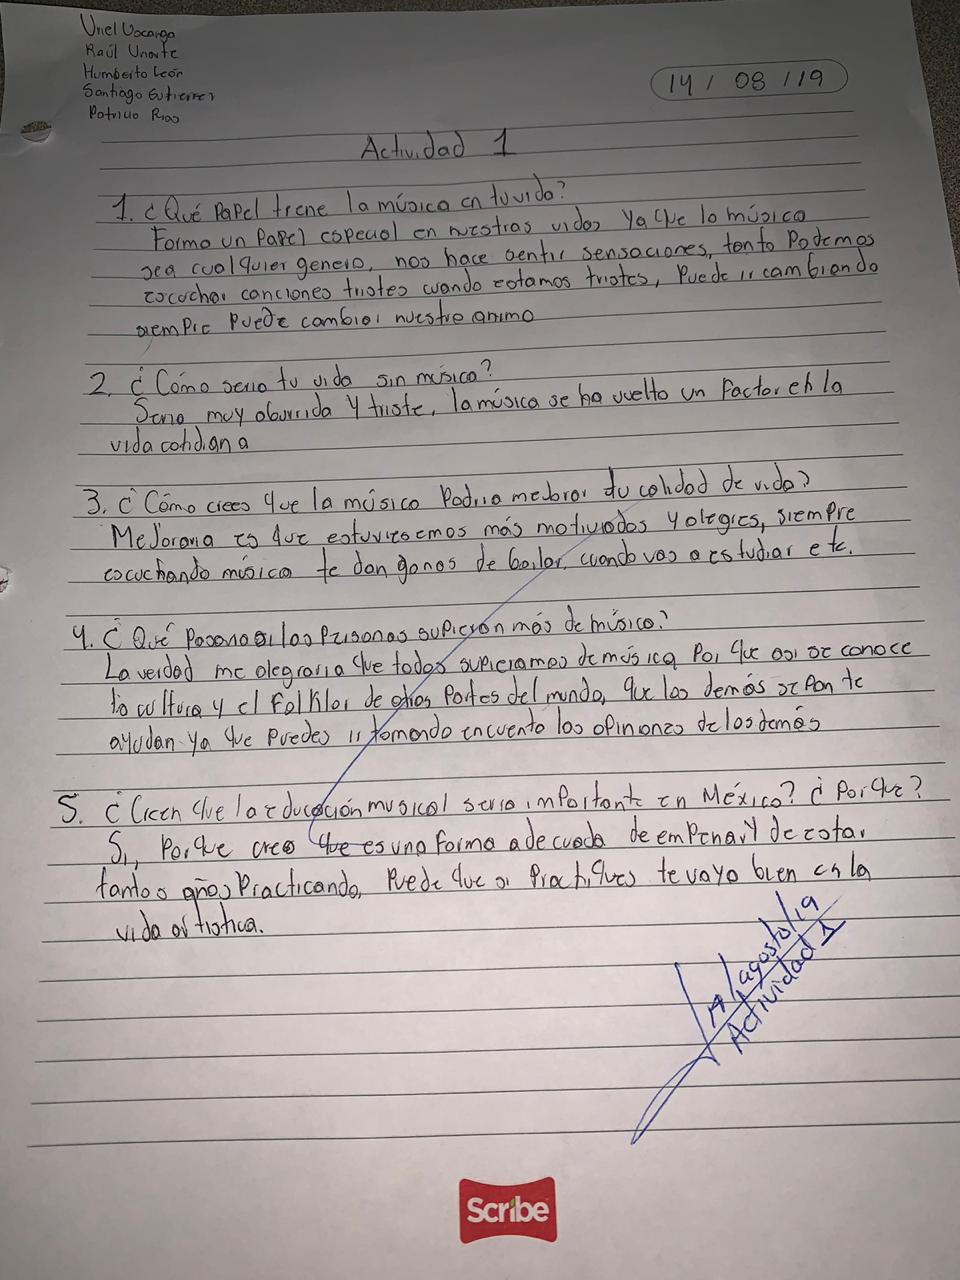 Uriel Uscanga
Raúl Uriarte
Humberto León
Santiago Gutierrez
Patricio Rios
14 / 08 / 19
Actividad 1
1. ¿Qué Papel tiene la música en tu vida?
Forma un Papel especial en nuestras vidas ya que la música
sea cualquier genero, nos hace sentir sensaciones, tanto Podemos
escuchar canciones tristes cuando estamos tristes, Puede ir cambiando
siempre Puede cambiar nuestro animo
2. ¿Cómo seria tu vida sin música?
Seria muy aburrida y triste, la música se ha vuelto un factor en la
vida cotidiana
3. ¿Cómo crees que la música Podria mejorar tu calidad de vida?
Mejoraria es que estuvieremos más motivados y alegres, siempre
escuchando música te dan ganas de bailar, cuando vas a estudiar etc.
4. ¿Qué Pasaria si las Personas supieron más de música?
La verdad me alegraria que todos supieramos de música Por que asi se conoce
la cultura y el folklor de otras Partes del mundo, que los demás sepan te
ayudan ya que puedes ir tomando en cuenta las opiniones de los demás
5. ¿Creen que la educación musical seria importante en México? ¿Por que?
Si, Por que creo que es una forma adecuada de empenar y de estar
tantos años Practicando, Puede que si Practiques te vaya bien en la
vida artistica.
14/agosto/19
Actividad 1
Scribe